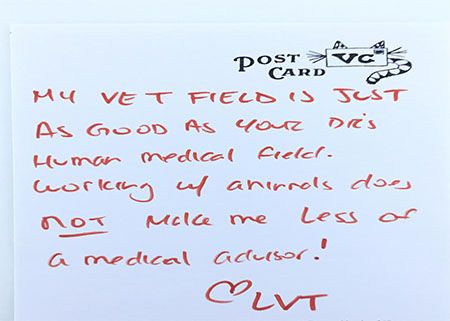 POST
CARD
VC
MY VET FIELD IS JUST
AS GOOD AS YOUR DR's
Human medical field.
Working w/ animals does
NOT make me less of
a medical advisor!
♡LVT